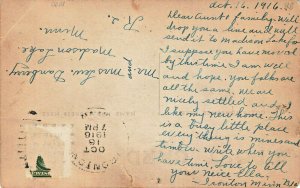 Oct. 16. 1916.
Dear Aunt & family. Will
drop you a line and will
send it to Madison Lake for
I suppose you have moved
by this time. I am well
and hope you folks are
all the same. We are
nicely settled, and I
like my new home. This
is a busy little place
everything is mines and
timber. Write when you
have time. Love to all
your neice Ella.
Ironton Minn
Mr Mrs Danberry
Madison Lake
Minn.
R 2.
OCT
16
7 PM
1916
MINN